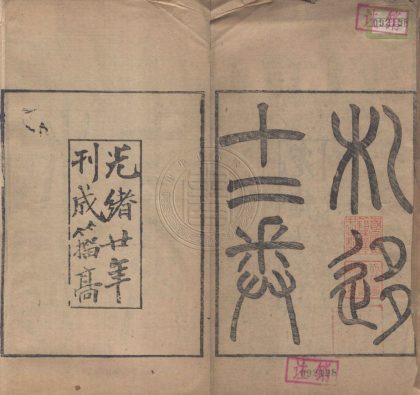 札迻
十二卷
光緒廿年
刊成籀高